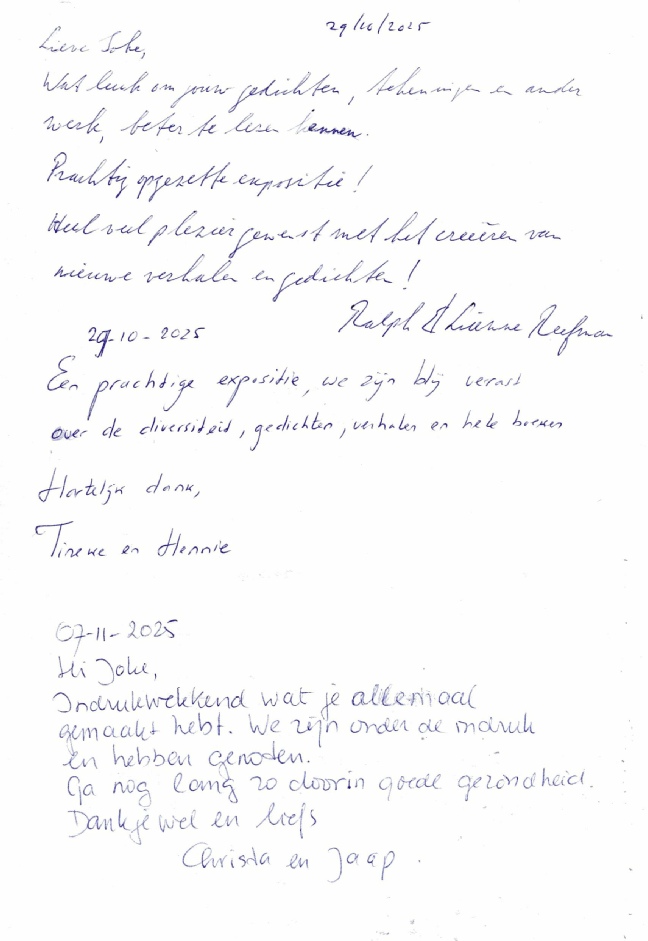 29/10/2025
Lieve Joke,
Wat leuk om jouw gedichten, tekeningen en ander
werk, beter te leren kennen.
Prachtig opgezette expositie!
Heel veel plezier gewenst met het creëren van
nieuwe verhalen en gedichten!
Ralph & Lianne Reefman
29-10-2025
Een prachtige expositie, we zijn blij verrast
over de diversiteid, gedichten, verhalen en hele boeken
Hartelijk dank,
Tineke en Hennie
07-11-2025
Hi Joke,
Indrukwekkend wat je allemaal
gemaakt hebt. We zijn onder de indruk
en hebben genoten.
Ga nog lang zo door in goede gezondheid.
Dankjewel en liefs
Christa en Jaap.